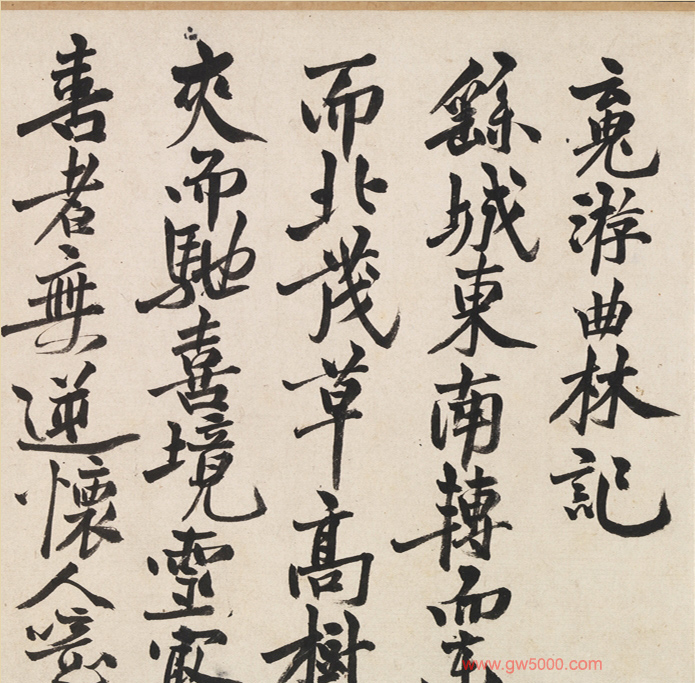 游曲林記
繇城東南轉而東
而北茂草高樹
夾而馳喜境靈
善者無逆懷人
www.gw5000.com